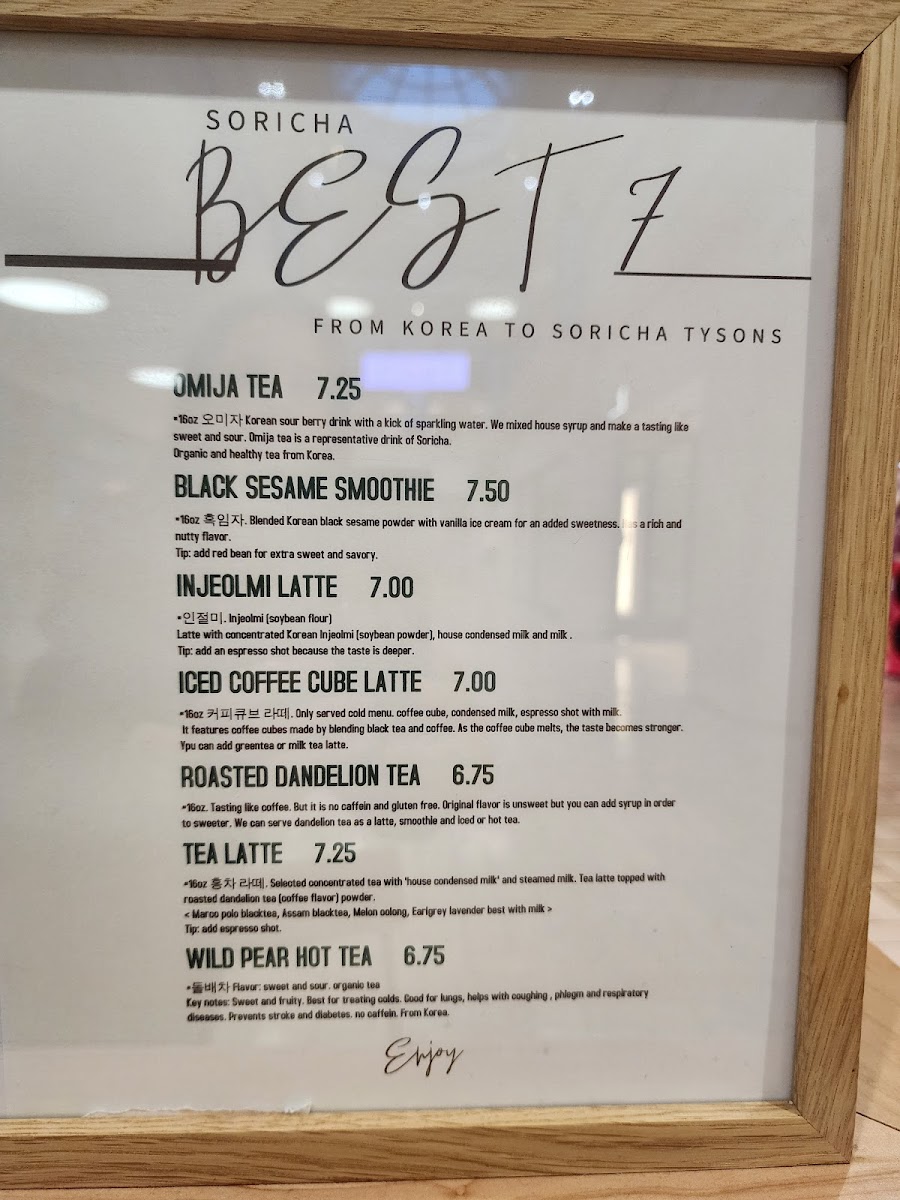 SORICHA
BEST 7
FROM KOREA TO SORICHA TYSONS
OMIJA TEA 7.25
•16oz 오미자 Korean sour berry drink with a kick of sparkling water. We mixed house syrup and make a tasting like
sweet and sour. Omija tea is a representative drink of Soricha.
Organic and healthy tea from Korea.
BLACK SESAME SMOOTHIE 7.50
•16oz 흑임자. Blended Korean black sesame powder with vanilla ice cream for an added sweetness. a rich and
nutty flavor.
Tip: add red bean for extra sweet and savory.
INJEOLMI LATTE 7.00
•인절미. Injeolmi (soybean flour)
Latte with concentrated Korean Injeolmi (soybean powder), house condensed milk and milk .
Tip: add an espresso shot because the taste is deeper.
ICED COFFEE CUBE LATTE 7.00
•16oz 커피큐브 라떼. Only served cold menu. coffee cube, condensed milk, espresso shot with milk.
It features coffee cubes made by blending black tea and coffee. As the coffee cube melts, the taste becomes stronger.
Ypu can add greentea or milk tea latte.
ROASTED DANDELION TEA 6.75
•16oz. Tasting like coffee. But it is no caffein and gluten free. Original flavor is unsweet but you can add syrup in order
to sweeter. We can serve dandelion tea as a latte, smoothie and iced or hot tea.
TEA LATTE 7.25
•16oz 홍차 라떼. Selected concentrated tea with 'house condensed milk' and steamed milk. Tea latte topped with
roasted dandelion tea (coffee flavor) powder.
< Marco polo blacktea, Assam blacktea, Melon oolong, Earlgrey lavender best with milk >
Tip: add espresso shot.
WILD PEAR HOT TEA 6.75
•돌배차 Flavor: sweet and sour. organic tea
Key notes: Sweet and fruity. Best for treating colds. Good for lungs, helps with coughing , phlegm and respiratory
diseases. Prevents stroke and diabetes. no caffein. From Korea.
Enjoy